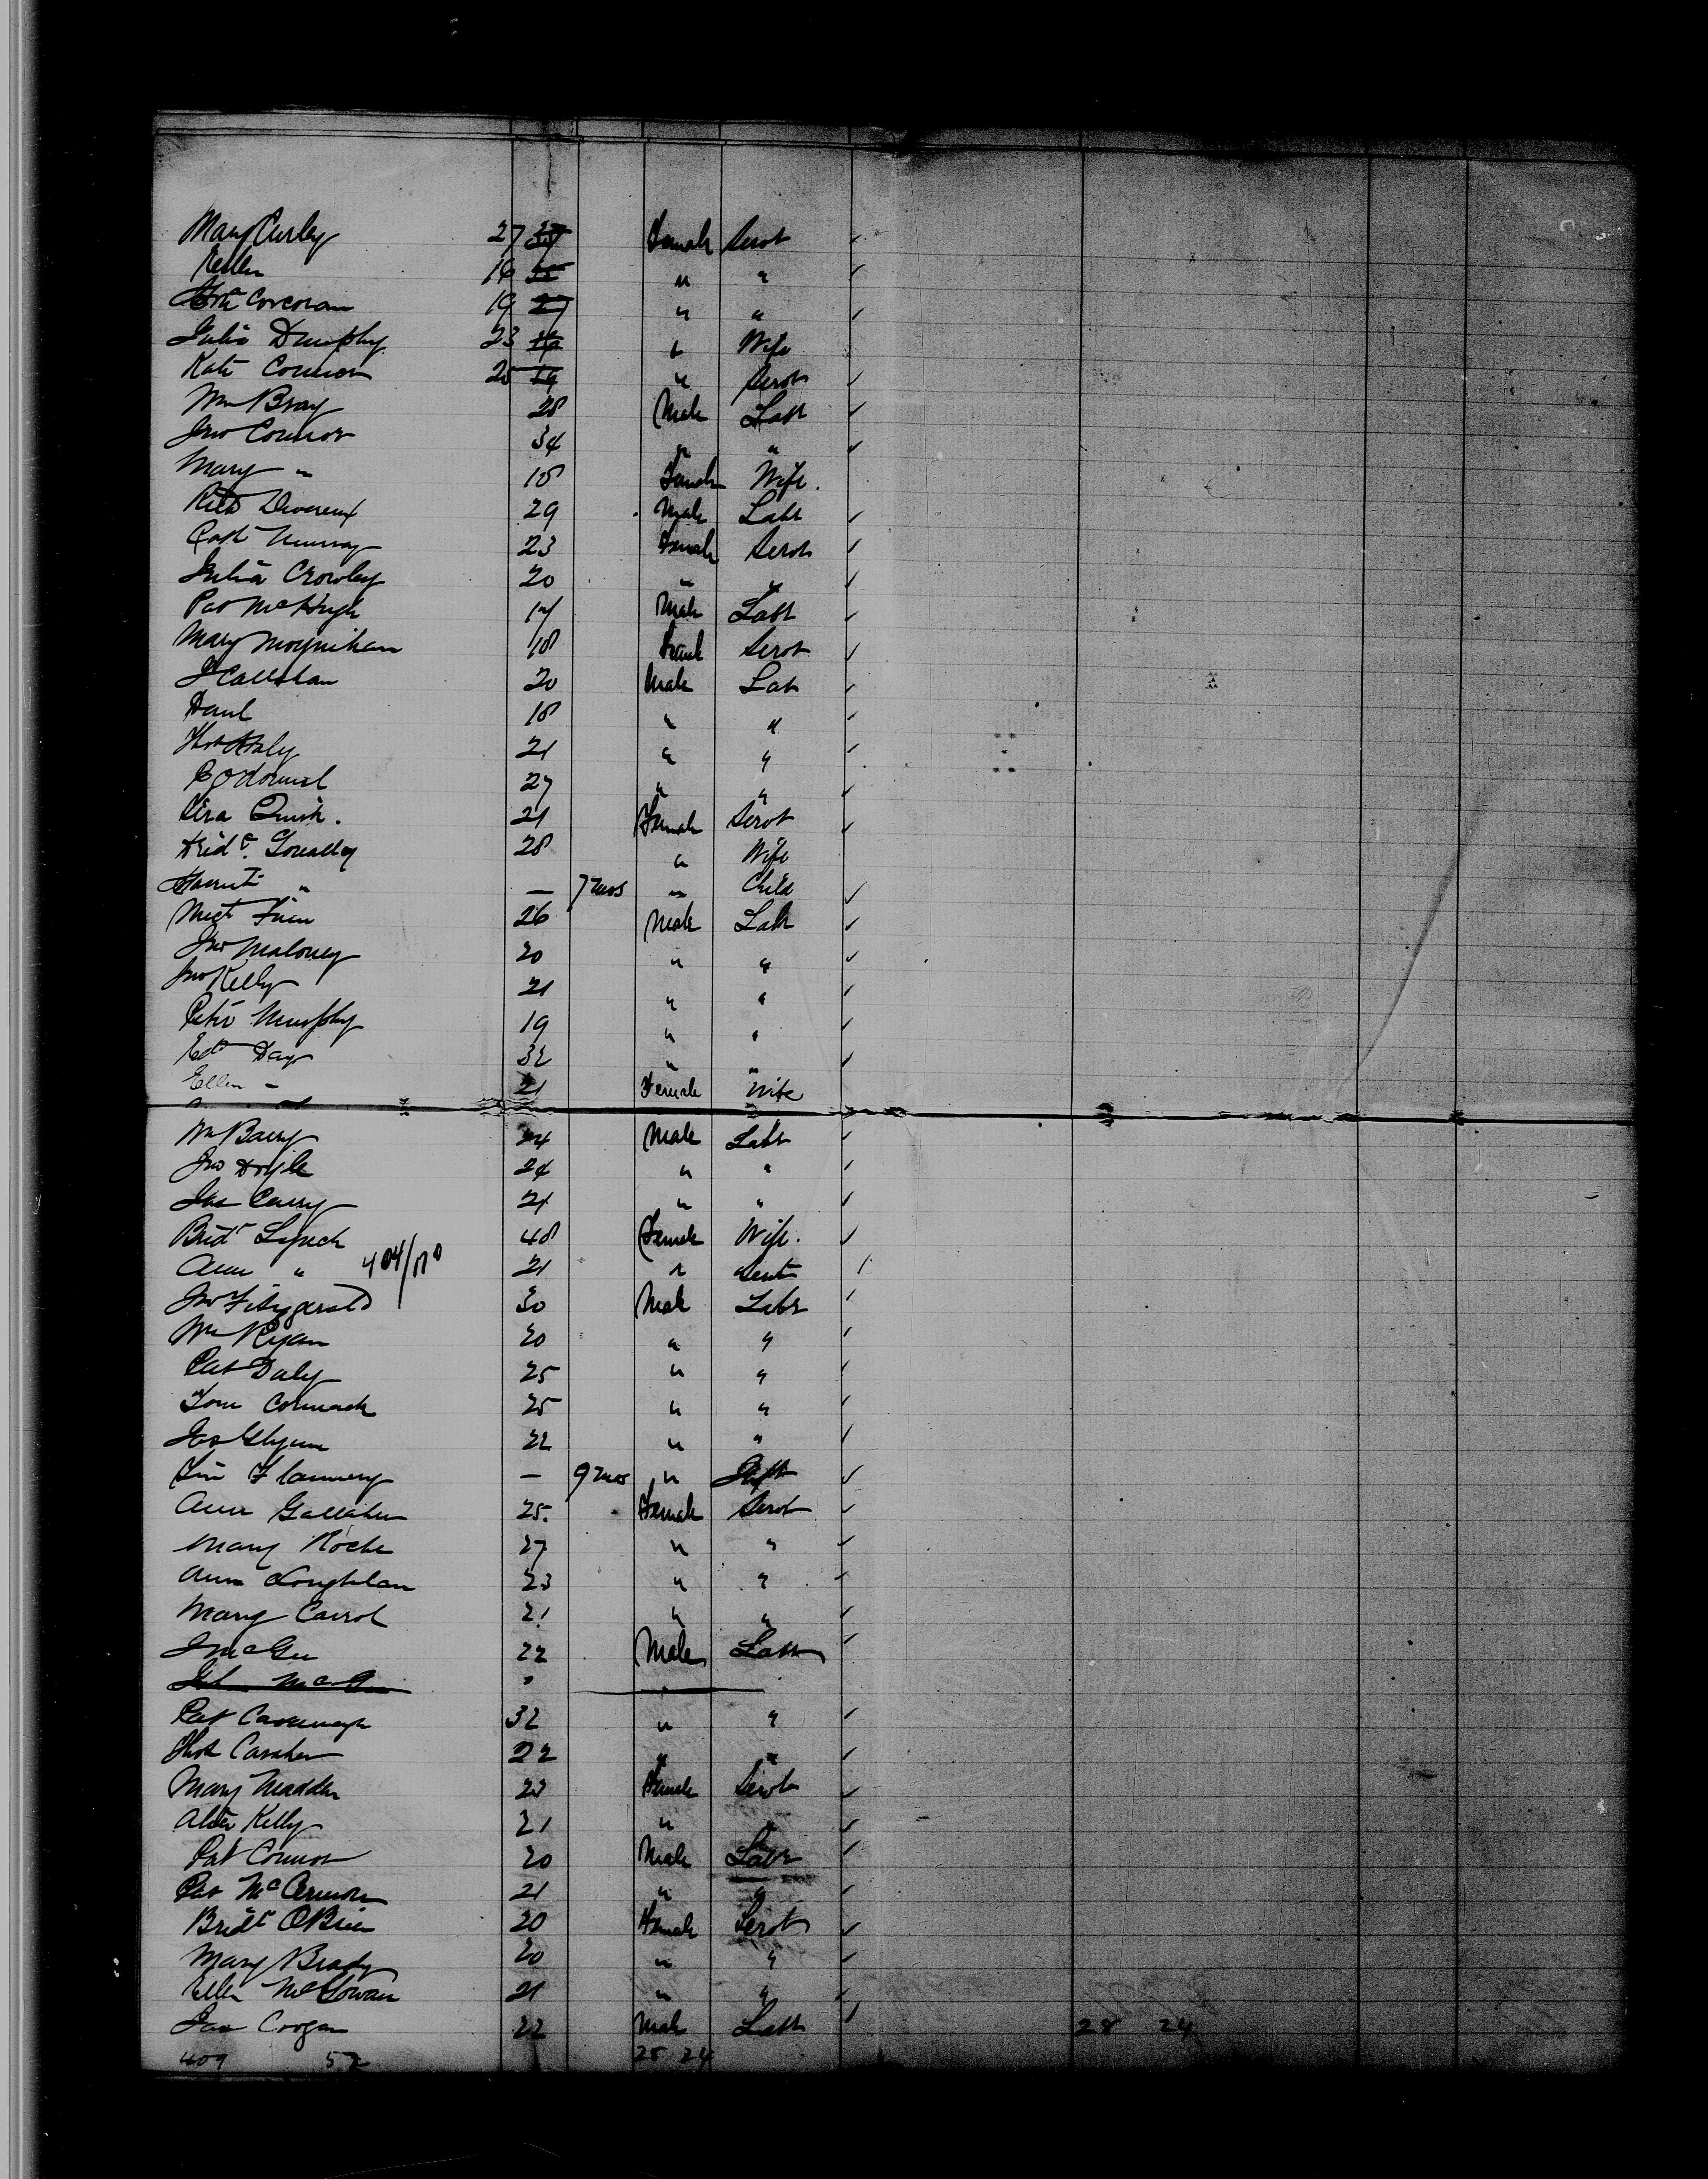 Mary Curley 27 Female Servt
Ellen 16 " "
Corcoran 19 " "
Julia Dunphy 23 " Wife
Kate Connor 25 " Servt
Wm Bray 28 Male Labr
Jno Connor 34 " "
Mary " 18 Female Wife.
Richd Devereux 29 Male Labr
Cath Murray 23 Female Servt
Julia Crowley 20 " "
Pat McHugh 17 Male Labr
Mary Moynihan 18 Female Servt
J Callahan 20 Male Labr
Danl 18 " "
Thos Healy 21 " "
P O'Donnel 27 " "
Quirk. 21 Female Servt
Bridt. 28 " Wife
" — 7 mos " Child
Micl Finn 26 Male Labr
Jno Maloney 20 " "
Jno Kelly 21 " "
Peter Murphy 19 " "
Edd Day 32 " "
Ellen " 21 Female Wife
Wm Barry 24 Male Labr
Jno Doyle 24 " "
Jas 21 " "
Bridt Lynch 48 Female Wife.
Ann " 21 " Servt
Jno Fitzgerald 30 Male Labr
Wm Ryan 20 " "
Pat Daly 25 " "
Tom Cormack 25 " "
Jas Glynn 22 " "
Tim Flannery — 9 mos "
Ann Gallaher 25. Female Servt
Mary Roche 27 " "
Ann Loughlan 23 " "
Mary Carrol 21 " "
J McGee 22 Male Labr
John McGee "
Pat Cavanagh 32 " "
Thos 22 " "
Mary Madden 23 Female Servt
Kelly 21 " "
Pat Connor 20 Male Labr
Pat 21 " "
Bridt OBrien 20 Female Servt
Mary Brady 20 " "
Ellen McGowan 21 " "
Jas Coogan 22 Male Labr 28 24
409 52 28 24